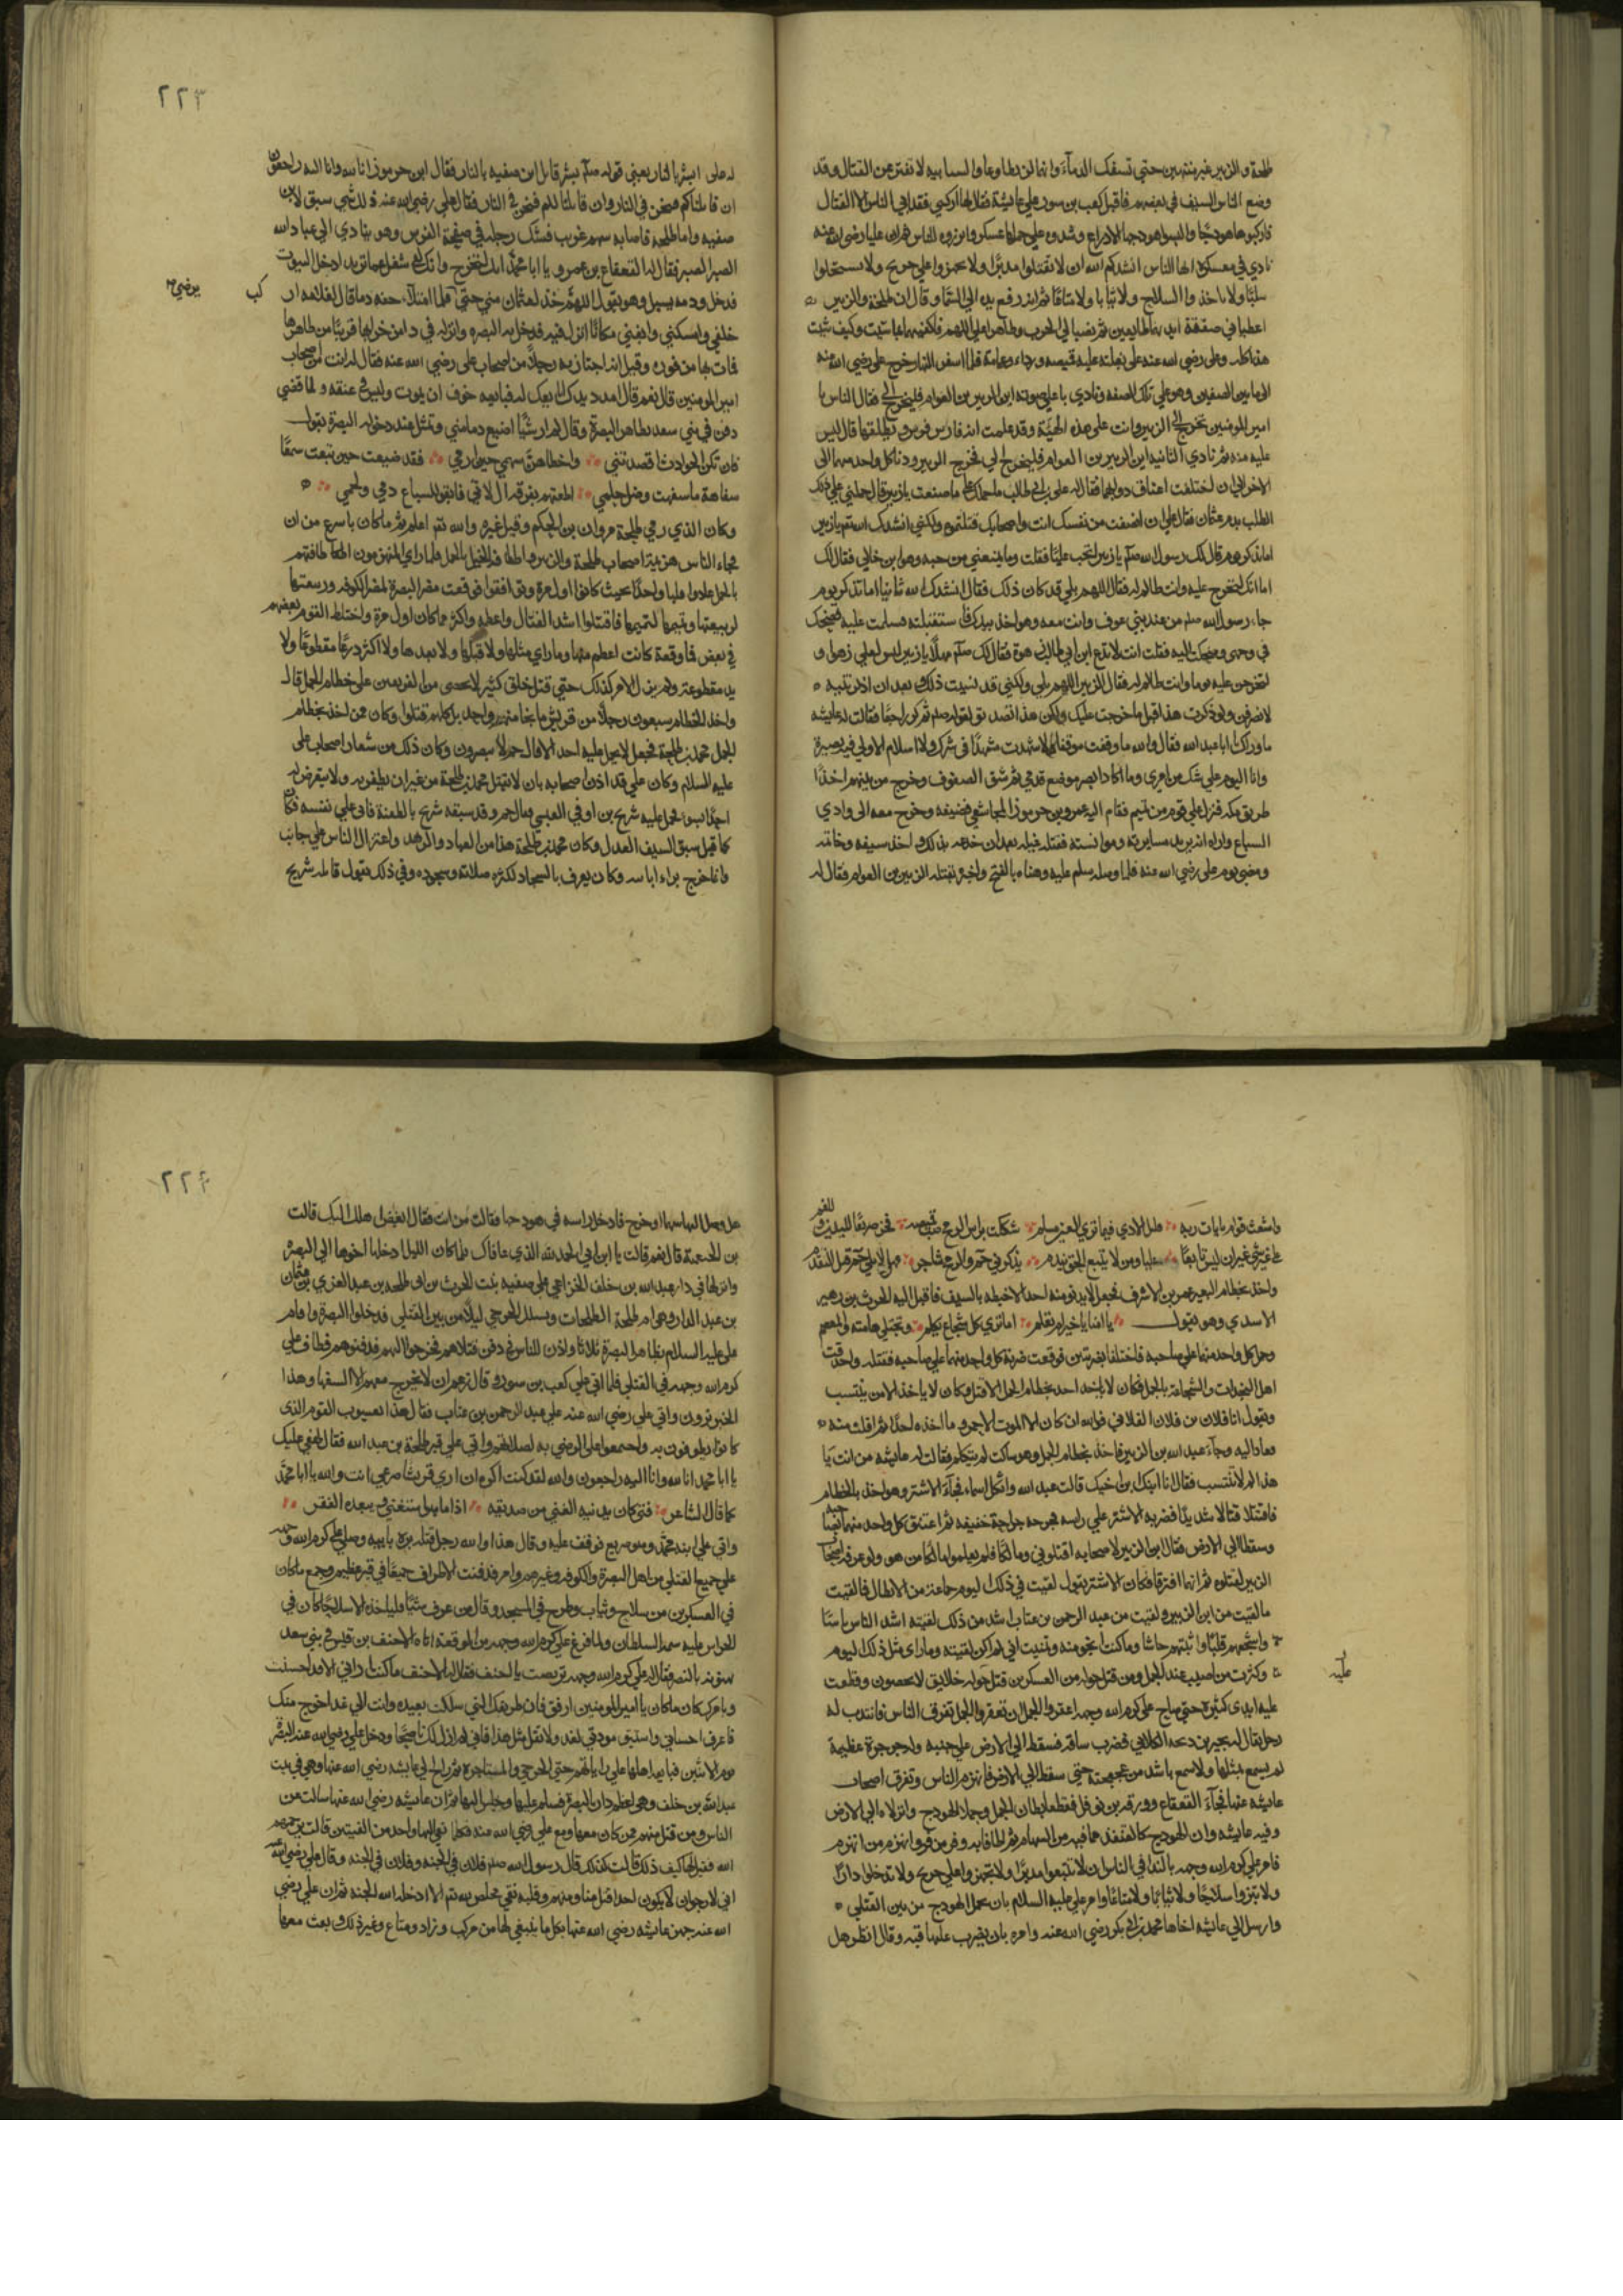 طلحة والزبير غير منتهين حتى تسفك الدمآء وانما لن يطاوعا والسبابيه لا تفتر عن القتال وقد
وضع الناس السيف في بعضهم فاقبل كعب بن سور على عايشة فقال لها اركبي فقد ابى الناس الا القتال
فاركبوها هودجًا والبسوا هودجها الادراع وشدوه على جملها عسكر وابرزوه للناس عليا رضي الله عنه
نادي في معسكره ايها الناس انشدكم الله ان لا تقتلوا مدبرًا ولا تجهزوا على جريح ولا تستحلوا
سلبًا ولا تاخذوا السلاح ولا ثيابا ولا متاعًا ثم انه رفع يديه الى السّما وقال ان طلحة والزبير
اعطياني صفقة ايديهما طايعين ثم نصبا لي الحرب وظاهرا علي اللهم فاكفنيهما بما شئت وكيف شئت
هذا كله وعلى رضي الله عنه على بغلته عليه قميصه ورداء وعمامة فلما اسفر النهار خرج على رضي الله عنه
الى ما بين الصفين وهو على تلك الصفه ونادي باعلى صوته اين الزبير بن العوام فليخرج الي فقال الناس يا
امير المومنين تخرج الى الزبير وانت على هذه الهيئة وقد علمت انه فارس قال ليس
عليه منه ثم نادي الثانيه اين الزبير بن العوام فليخرج لي فخرج الزبير ودنا كل واحد منهما الى
الاخر الى ان اختلفت اعناق دوابهما فقال له علي بن ابي طالب ما حملك على ما صنعت يا زبير قال حملني على ذلك
الطلب بدم عثمان فقال علي ان انصفت من نفسك انت واصحابك قتلتموه ولكني انشدك الله يا زبير
اما تذكر يوم قال لك رسول الله صلم يا زبير اتحب عليّا فقلت وما يمنعني من حبه وهو ابن خالي فقال لك
اما انك لتخرج عليه وانت ظالم له فقال اللهم بلى قد كان ذلك فقال انشدك الله ثانيا اما تذكر يوم
جاء رسول الله صلم من عند بني عوف وانت معه وهو اخذ بيدك فاستقبلته فسلمت عليه فضحك
في وجهي وضحكت اليه فقلت انت لا يدع ابن ابي طالب زهوه فقال لك صلم مهلًا يا زبير ليس لعلي زهو و
لتخرجن عليه يوما وانت ظالم له فقال الزبير اللهم بلى ولكني قد نسيت ذلك وبعد ان اذكرتنيه
لانصرفن ولو ذكرت هذا قبل ما خرجت عليك ولكن هذا تصديق لقوله صلم ثم كر راجعًا فقالت له عايشه
ما وراك ابا عبد الله فقال والله ما وقفت موقفا ولا شهدت مشهدًا في شرك ولا اسلام الا ولي فيه بصيرة
وانا اليوم على شك من امري وما اكاد ابصر موضع قدمي ثم شق الصفوف وخرج من بينهم اخذًا
طريق مكه فنزل على قوم من تميم فقام اليه عمرو بن جرموز المجاشعي فضيفه وخرج معه الى وادي
السباع واراه انه يريد مسايرته وموانسته فقتله غيله بعد ان خدعه بذلك واخذ سيفه وخاتمه
ومضى يوم على رضي الله عنه فلما وصله سلم عليه وهناه بالفتح واخبره بقتله الزبير بن العوام فقال له
٢٢٣
له على ابشر بالنار يعني قوله صلم بشر قاتل ابن صفيه بالنار فقال ابن جرموز انا لله وانا اليه راجعون
ان قاتلناكم فنحن في النار وان قاتلنا لكم فنحن في النار فقال على رضي الله عنه ذلك شي سبق لابن
صفيه واما طلحة فاصابه سهم غرب فشك رجله في صفحة الفرس وهو ينادي الى عباد الله
الصبر الصبر فقال له القعقاع بن عمرو يا ابا محمّد انك لجريح وانك شغل عما تريد ادخل البيوت
فدخل ودمه يسيل وهو يقول اللهم خذ لعثمان مني حتى فلما امتلا خفه دما قال لغلامه ار
يرضى كب
خلفي وامسكني وابغني مكانًا انزل فيه فدخل به البصره وانزله في دار من خرابها قريبًا من ظاهرها
فمات بها من فوره وقيل انه اجتاز به رجلًا من اصحاب على رضي الله عنه فقال له انت من اصحاب
امير المومنين قال نعم قال امدد يدك لى ابايعك له فبايعه خوف ان يموت وليس في عنقه ولما قضي
دفن في بني سعد بظاهر البصرة وقال لم ار شيخًا اضيع دما مني وتمثل عند دخوله البصرة بقول
فان تكن الحوادث اقصدتني واخطاهن سهمي حين ارمي فقد ضيعت حين تبعت سهمًا
سفاهة ما سفهت وضل حلمي اطعتهم بفرقة ال لاي فالقوا للسباع دمي ولحمي
وكان الذي رمي طلحة مروان بن الحكم وقيل غيره والله تم اعلم ثم ما كان باسرع من ان
جماء الناس هزيمة اصحاب طلحة والزبير واطافت الخيل بالجمل ولما راي المنهزمون اطافتهم
بالجمل عادوا عليها واحدًا بحيث كانوا اول مرة وتوافقوا فوقعت مضر البصرة لمضر الكوفه وربيعتها
لربيعتها وتيمها لتيمها فاقتتلوا اشد القتال واعظمه واكثر مما كان اول مرة واختلط القوم بعضهم
في بعض فما وقعة كانت اعظم منها وما راي مثلها ولا قبلها ولا بعدها ولا اكثر درعًا مقطوعًا ولا
يد مقطوعه ولم يزل الامر كذلك حتى قتل خلق كثير لا يحصى من الفريقين على خطام الجمل قال
واخذ الخطام سبعون رجلًا من قريش ما نجا منهم واحد بل كلهم قتلوا وكان ممن اخذ بخطام
الجمل محمد بن طلحة فجعل لا يحمل عليه احد الا قال حم لا ينصرون وكان ذلك من شعار اصحاب على
عليه السلام وكان علي قد اذن اصحابه بان لا يقتل محمد بن طلحة من غير ان يظفر به ولا يتعرض له
فحمل عليه شريح بن اوفى العبسي فقال حم وقد سبقه شريح بالطعنة فاتى على نفسه فكان
كما قيل سبق السيف العدل وكان محمد بن طلحة هذا من العباد والزهد واعتزال الناس على جانب
وانما خرج براء اباه وكان يعرف بالسجاد لكثره صلاته وسجوده وفي ذلك يقول قاتله شريح
واشعث قوام بايات ربه قليل الاذي فيما تري العين مسلم شككت براس الرمح قميصه فخر صريعًا لليدين و للفم
على غير شي غير ان ليس تابعًا عليا ومن لا يتبع الحق يندم يذكرني حم والرمح شاجر فهل لا تلا حم قبل التقدم
واخذ بخطام البعير عمرو بن الاشرف فجعل لا يدنو منه احد الا خبطه بالسيف فاقبل اليه الحرث بن زهير
الاسدي وهو يقول يا امنا يا خير ام نعلم اما تري كل شجاع يكلم وتجتلى هامته والمعصم
وحمل كل واحد منهما على صاحبه فاختلفا بضربتين فوقعت ضربة كل واحد منهما على صاحبه فقتله واحدقت
اهل النجدات والشجاعة بالجمل فكان لا ياخذ احد بخطام الجمل الا قتل وكان لا ياخذ الا من ينتسب
ويقول انا فلان بن فلان الفلاني فوالله ان كان الا الموت الاحمر وما اخذه احدًا ثم افلت منه
معاداليه وجآء عبد الله بن الزبير فاخذ بخطام الجمل وهو ساكت لم يتكلم فقالت له عايشه من انت يا
هذا لم لا تنتسب فقال انا ابنك بن اختك قالت عبد الله واثكل اسماء فجآء الاشتر وهو اخذ بالخطام
فاقتتلا قتالا شديدًا فضربه الاشتر على راسه فجرحه جراحة خفيفه ثم اعتنق كل واحد منهما صاحبه
وسقطا الى الارض فقال ابن الزبير لاصحابه اقتلوني ومالكًا فلم يعلموا مالكًا من هو ولو عرفه اصحاب
الزبير لقتلوه ثم انهما افترقا فكان الاشتر يقول لقيت في ذلك اليوم جماعة من الابطال فما لقيت
ما لقيت من ابن الزبير ولقيت من عبد الرحمن بن عتاب اشد من ذلك لقيته اشد الناس باسًا
واشجعهم قلبًا واثبتهم جاشا وما كدت انجو منه وتمنيت اني لم اكن لقيته وما راى مثل ذلك اليوم
وكثرت من اصيب عند الجمل ومن قتل حوله من العسكرين قتل حوله خلايق لا يحصون وقطعت
عليه
عليه ايدى كثيره حتى صاح على كرم الله وجهه اعقروا الجمل ان تعقروا الجمل تفرق الناس فانتدب له
رجل يقال له بجير بن دلجه الكلابي فضرب ساقه فسقط الى الارض على جنبه ولجرجرة عظيمة
لم يسمع بمثلها ولا سمع باشد من عجعجته حتى سقط الى الارض فانهزم الناس وتفرق اصحاب
عايشه عنها فجآء القعقاع وورقه بن نوفل فقطعا بطان الجمل وحملا الهودج وانزلاه الى الارض
وفيه عايشه وان الهودج كالقنفد مما فيه من السهام ثم اطافا به وفر من فر وانهزم من انهزم
فامر على كرم الله وجهه بالندا في الناس ان لا تتبعوا مدبرًا ولا تجهزوا على جريح ولا تدخلوا دارًا
ولا تبتزوا سلاحًا ولا ثيابًا ولا متاعًا وامر علي عليه السلام بان يحمل الهودج من بين القتلى
وارسل الى عايشه اخاها محمد بن ابي بكر رضي الله عنه وامره بان يضرب عليها قبه وقال انظر هل
٢٢٤
هل وصل اليها سهما او جرح فادخل راسه في هودجها فقالت من انت فقال ابغض اهلك اليك قالت
بن الخثعمية قال نعم قالت يا ابن ابي الحمد لله الذي عافاك فلما كان الليل ادخلها اخوها الى البصره
وانزلها في دار عبد الله بن خلف الخزاعي على صفيه بنت الحرث بن ابي طلحه بن عبد العزي بن عثمان
بن عبد الدار وهي ام طلحة الطلحات وتسلل الجرحي ليلًا من بين القتلى فدخلوا البصرة واقام
على عليه السلام بظاهر البصرة ثلاثا واذن للناس في دفن قتلاهم فخرجوا اليهم فدفنوهم وطاف على
كرم الله وجهه في القتلى فلما اتى على كعب بن سور قال زعم ان لا يخرج معهم الا السفها وهذا
الحبر ترون واتى على رضي الله عنه على عبد الرحمن بن عتاب فقال هذا يعسوب القوم الذى
كانوا يطوفون به واجتمعوا على الرضي به لصلاتهم واتى على قبر طلحة بن عبد الله فقال لهفي عليك
يا ابا محمد انا لله وانا اليه راجعون والله لقد كنت اكره ان اري قريشًا صرعى انت والله يا ابا محمّد
كما قال الشاعر فتى كان يدنيه الغنى من صديقه اذا ما هو استغنى ويبعده الفقر
واتى على ابنه محمّد وهو صريع فوقف عليه وقال هذا والله رجل قتله بره بابيه وصلى على كرم الله وجهه
على جميع القتلى من اهل البصرة والكوفه وغيرهم وامر فدفنت الاطراف جميعًا في قبر عظيم وجمع ما كان
في العسكرين من سلاح وثياب وطرح في المسجد وقال من عرف شيًا فلياخذه الا سلاحًا كان في
الخزاين عليه سمة السلطان ولما فرغ على كرم الله وجهه من الوقعة اتاه الاحنف بن قيس في بني سعد
يهنونه بالنصر فقال له علي كرم الله وجهه تربصت يا احنف فقال له الاحنف ما كنت اراني الا قد احسنت
وبامرك كان ما كان يا امير المومنين ارفق فان طريقك التي سلكت بعيده وانت الي غدا احوج منك
فاعرف احساني واستبق مودتي لغد ولا تقل مثل هذا فاني لم ازل لك ناصحًا ودخل على رضي الله عنه البصره
يوم الاثنين فبايعه اهلها على راياتهم حتى الجرحي والمستاجره ثم راح الى عايشه رضي الله عنها وهي في بيت
عبد الله بن خلف وهي اعظم دار بالبصره فسلم عليها وجلس اليها ثم ان عايشه رضي الله عنها سالت عن
الناس ومن قتل منهم ممن كان معها ومع على رضي الله عنه فكلما نعي اليها واحد من الفيتين قالت يرحمهم
الله فقيل لها كيف ذلك قالت كذلك قال رسول الله صلم فلان في الجنه وفلان في الجنه وقال على رضي الله عنه
اني لارجو ان لا يكون احدًا قتل منا ومنهم وقلبه نقي مخلص لله تم الا ادخله الله الجنه ثم ان على رضي
الله عنه جهز عايشه رضي الله عنها بكل ما ينبغي لها من مركب وزاد ومتاع وغير ذلك وبعث معها